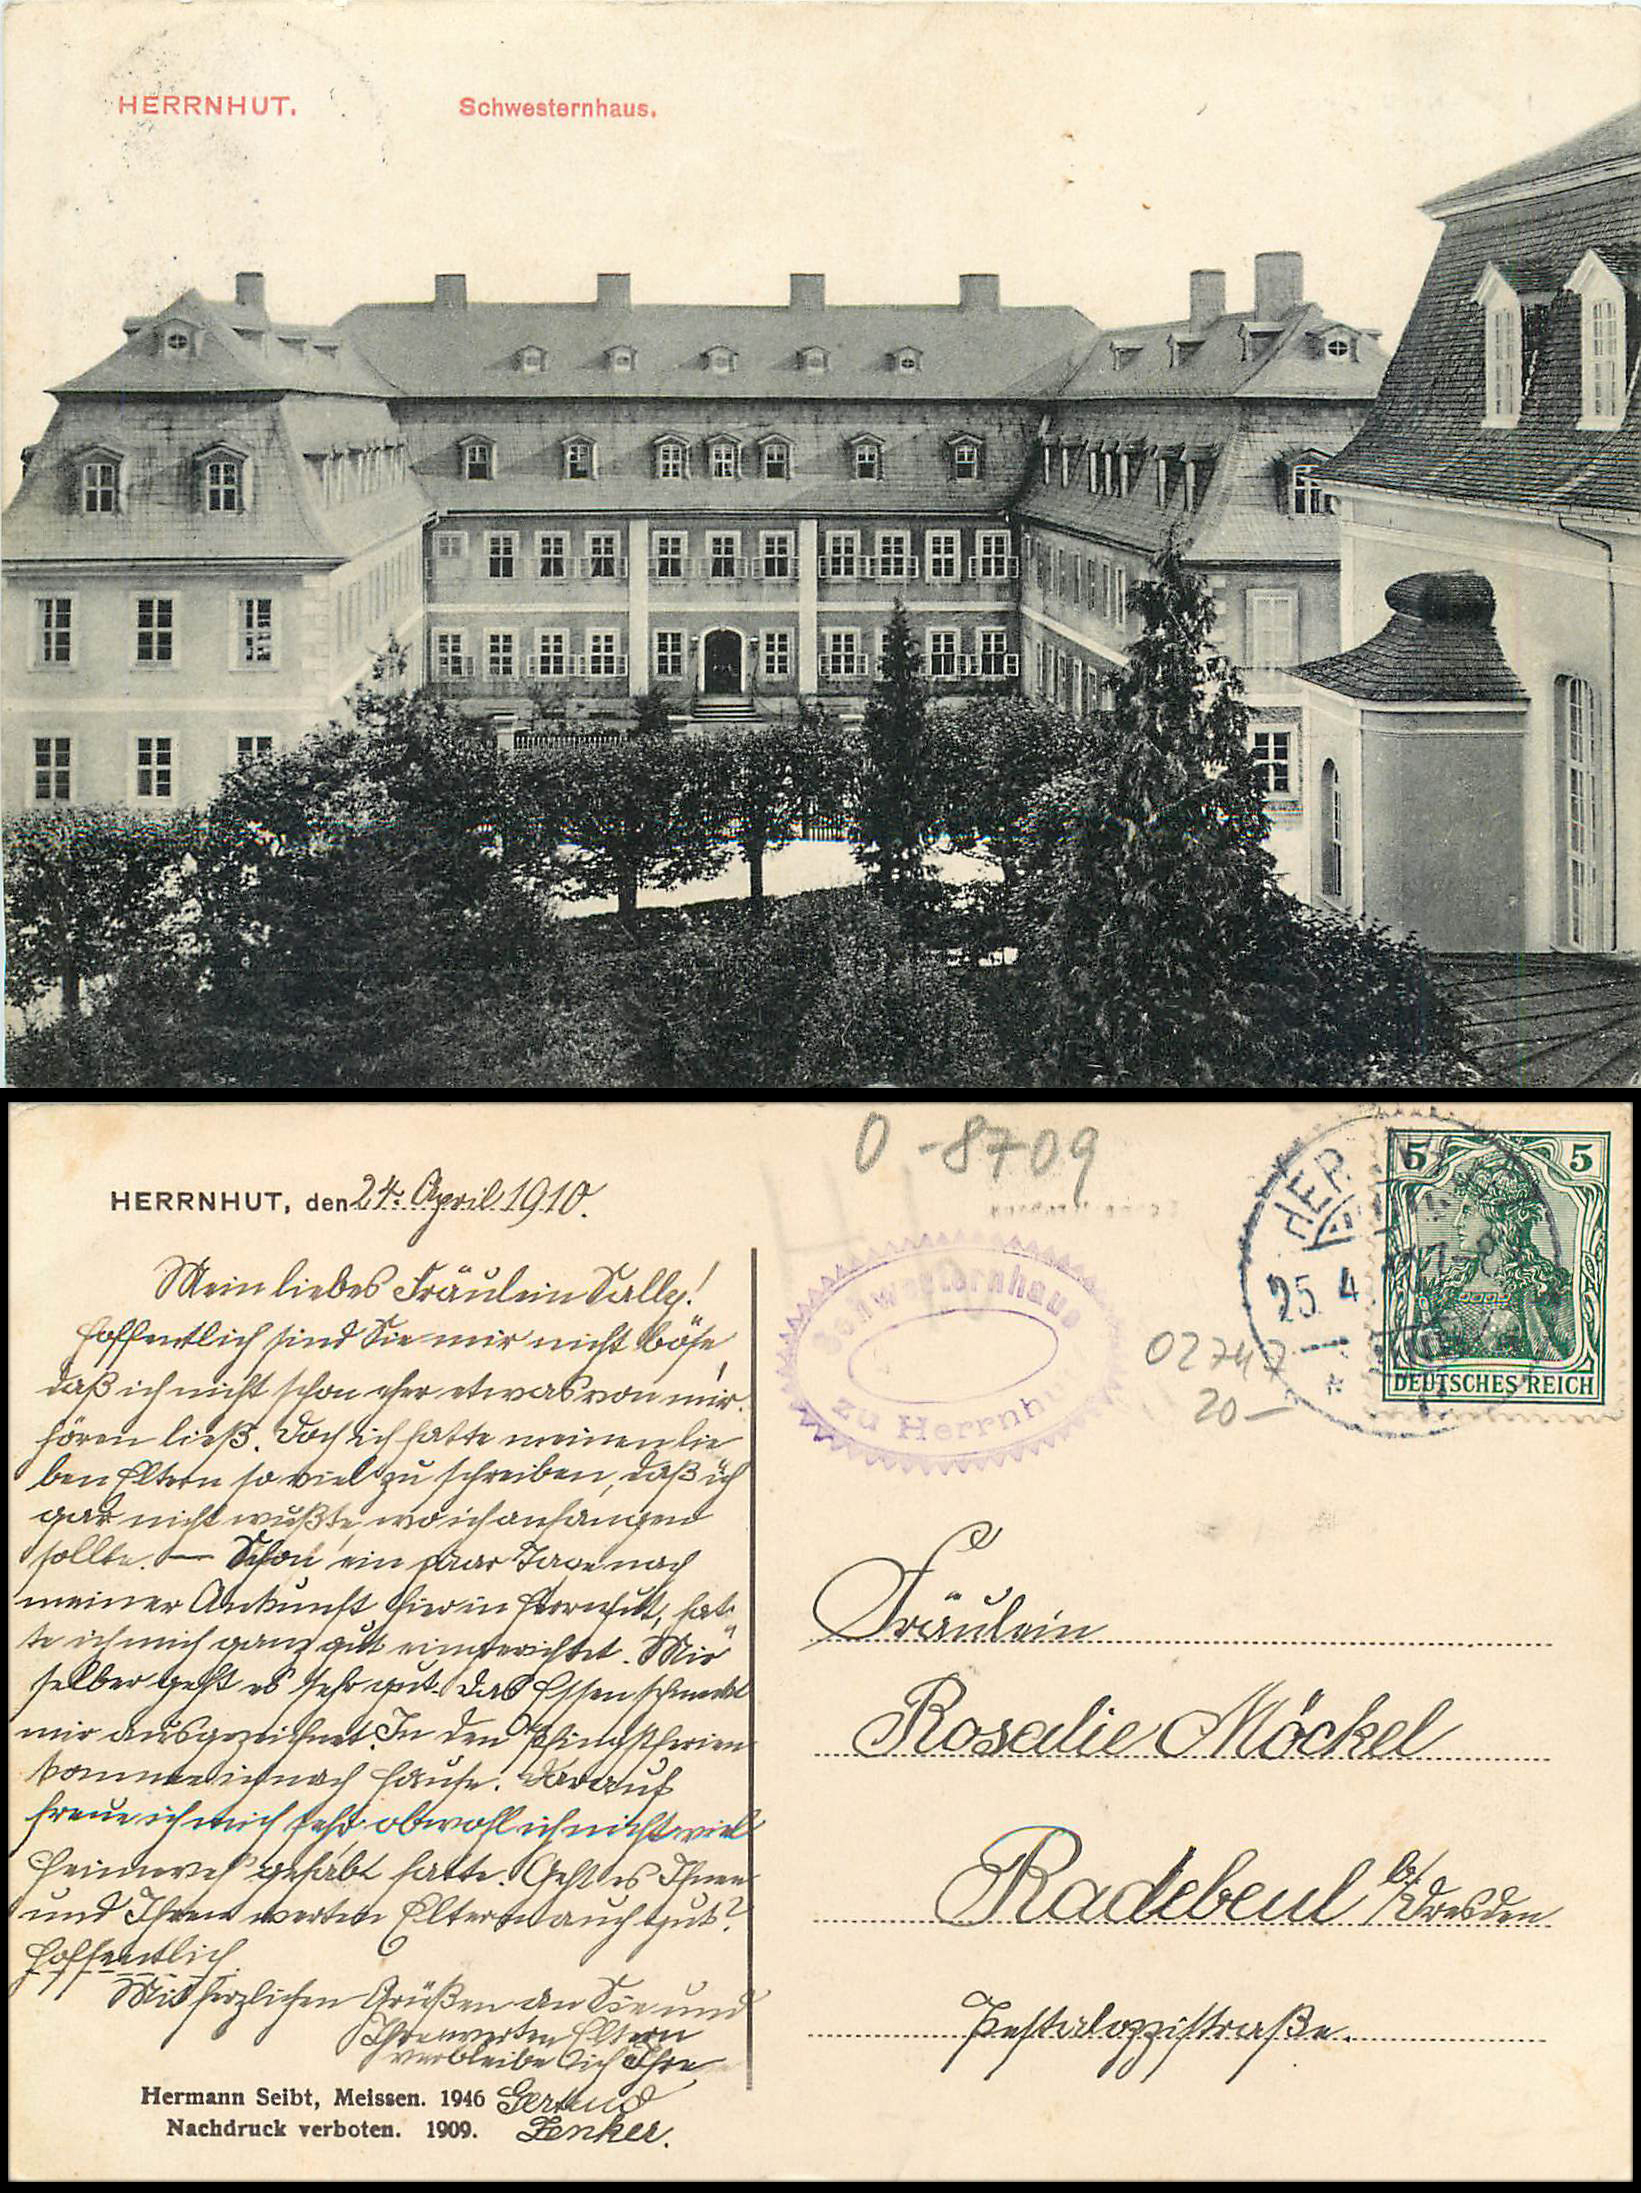 HERRNHUT. Schwesternhaus.
0-8709
HERRNHUT, den 24. April 1910.
Mein liebes Fräulein Sally!
Hoffentlich sind Sie mir nicht böse,
daß ich nicht schon eher etwas von mir
hören ließ. Doch ich hatte meinen lie
ben Eltern so viel zu schreiben, daß ich
gar nicht wußte, wo ich anfangen
sollte. — Schon ein paar Tage nach
meiner Ankunft hier in Herrnhut, hat-
te ich mich ganz gut eingerichtet. Mir
selber geht es sehr gut. Das Essen schmeckt
mir ausgezeichnet. In den Pfingstferien
komme ich nach Hause. Darauf
freue ich mich sehr, obwohl ich nicht viel
Heimweh gehabt hatte. Geht es Ihnen
und Ihren werten Eltern auch gut?
Hoffentlich.
Mit herzlichen Grüßen an Sie und
Ihre werten Eltern
verbleibe ich Ihre
Gertrud
Zenker.
Hermann Seibt, Meissen. 1946
Nachdruck verboten. 1909.
Schwesternhaus
zu Herrnhu
02747
20-
HER
25 4
5 5
DEUTSCHES REICH
Fräulein
Rosalie Möckel
Radebeul b/Dresden
Pestalozzistraße.